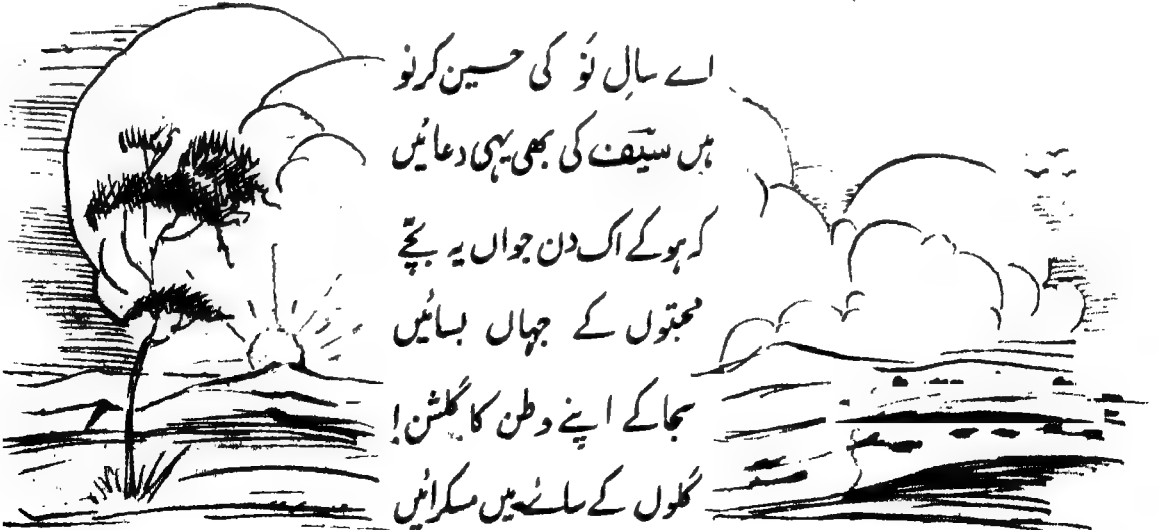 اے سالِ نَو کی حسین کرنو
ہیں سیفؔ کی بھی یہی دعائیں
کہ ہو کے اک دن جواں یہ بچّے
محبتوں کے جہاں بسائیں
سجا کے اپنے وطن کا گلشن!
گلوں کے سائے میں مسکرائیں